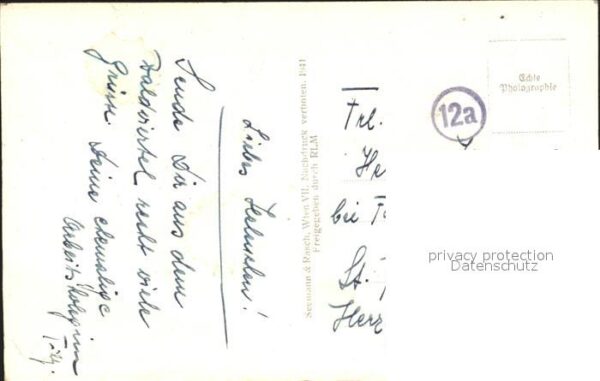 Liebes Helmchen!
Sende Dir aus dem
Waldviertel recht viele
Grüsse. Deine ehemalige
Arbeitskollegin
Seemann & Rasch, Wien VII. Nachdruck verboten. 1941
Freigegeben durch RLM
12a
Echte
Photographie
Frl.
He
bei
St.
Herz
privacy protection
Datenschutz